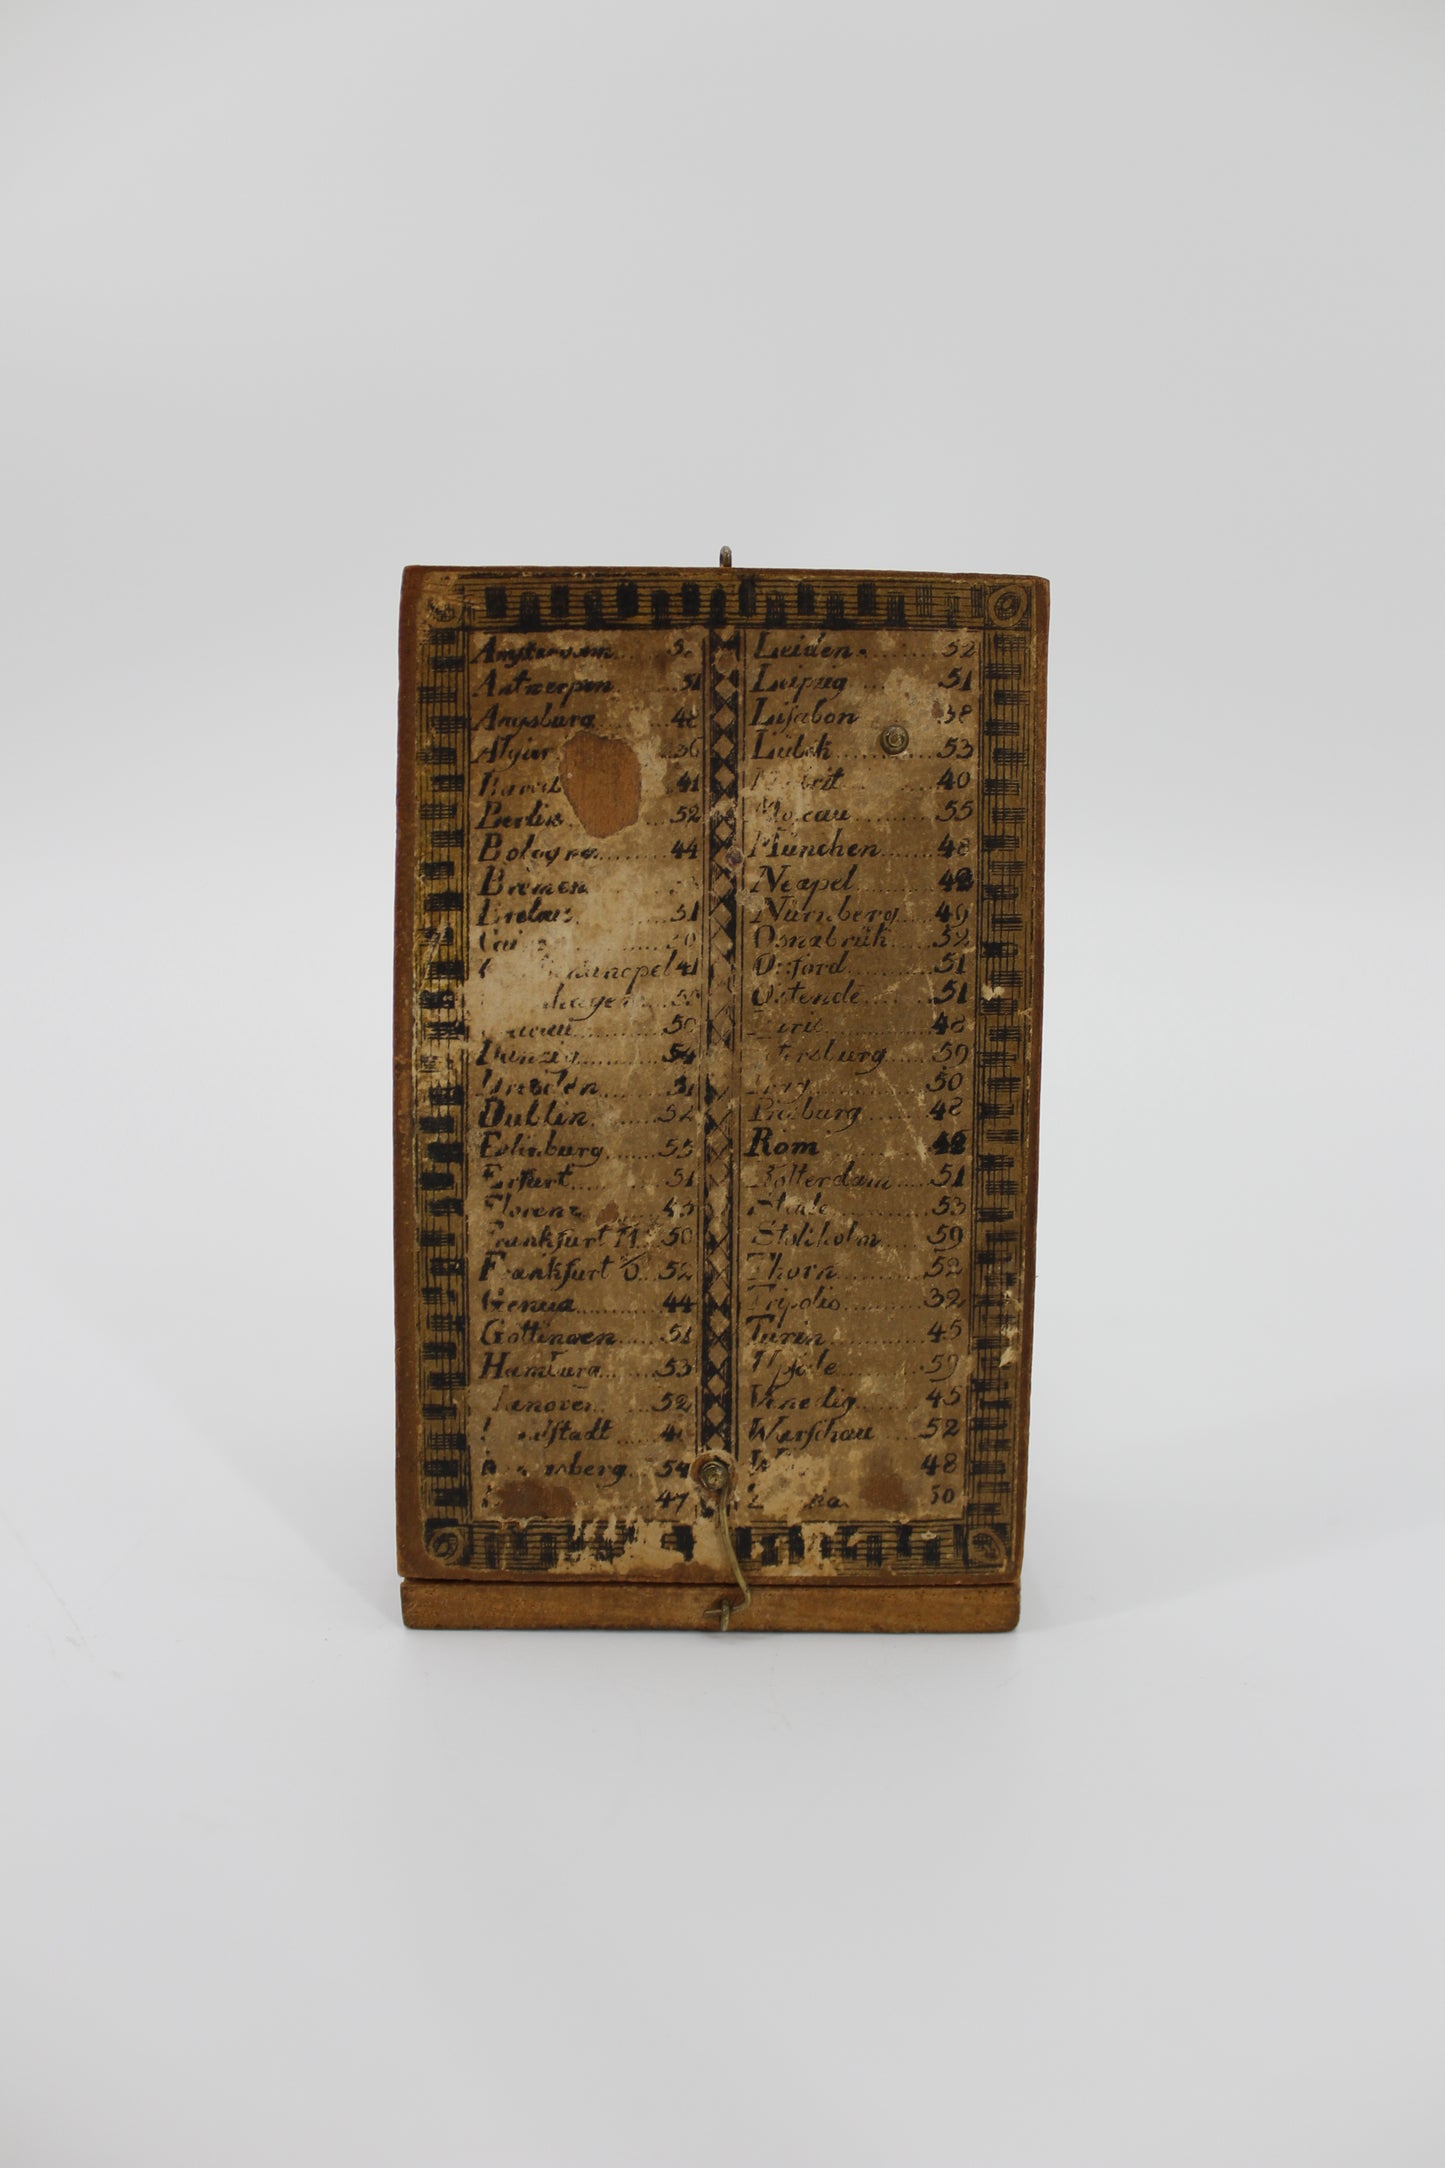 Amsterdam
Antwerpen 51
Augsburg 48
Algier 36
41
Berlin 52
Bologna 44
Bremen
Breslau 51
41
50
Danzig 54
Dresden 51
Dublin 52
Edinburg 55
Erfurt 51
Florenz 43
Frankfurt M. 50
Frankfurt O. 52
Genua 44
Gottingen 51
Hamburg 53
Hanover 52
54
47
Leiden 52
Leipzig 51
Lisabon 38
Lübek 53
40
Moscau 55
München 48
Neapel
Nürnberg 49
Osnabrük 52
Oxford 51
Ostende 51
48
Petersburg 59
50
48
Rom 42
Rotterdam 51
53
Stokholm 59
Thorn 52
Tripolis 32
Turin 45
Upsale 59
Venedig 45
Warschau 52
48
50